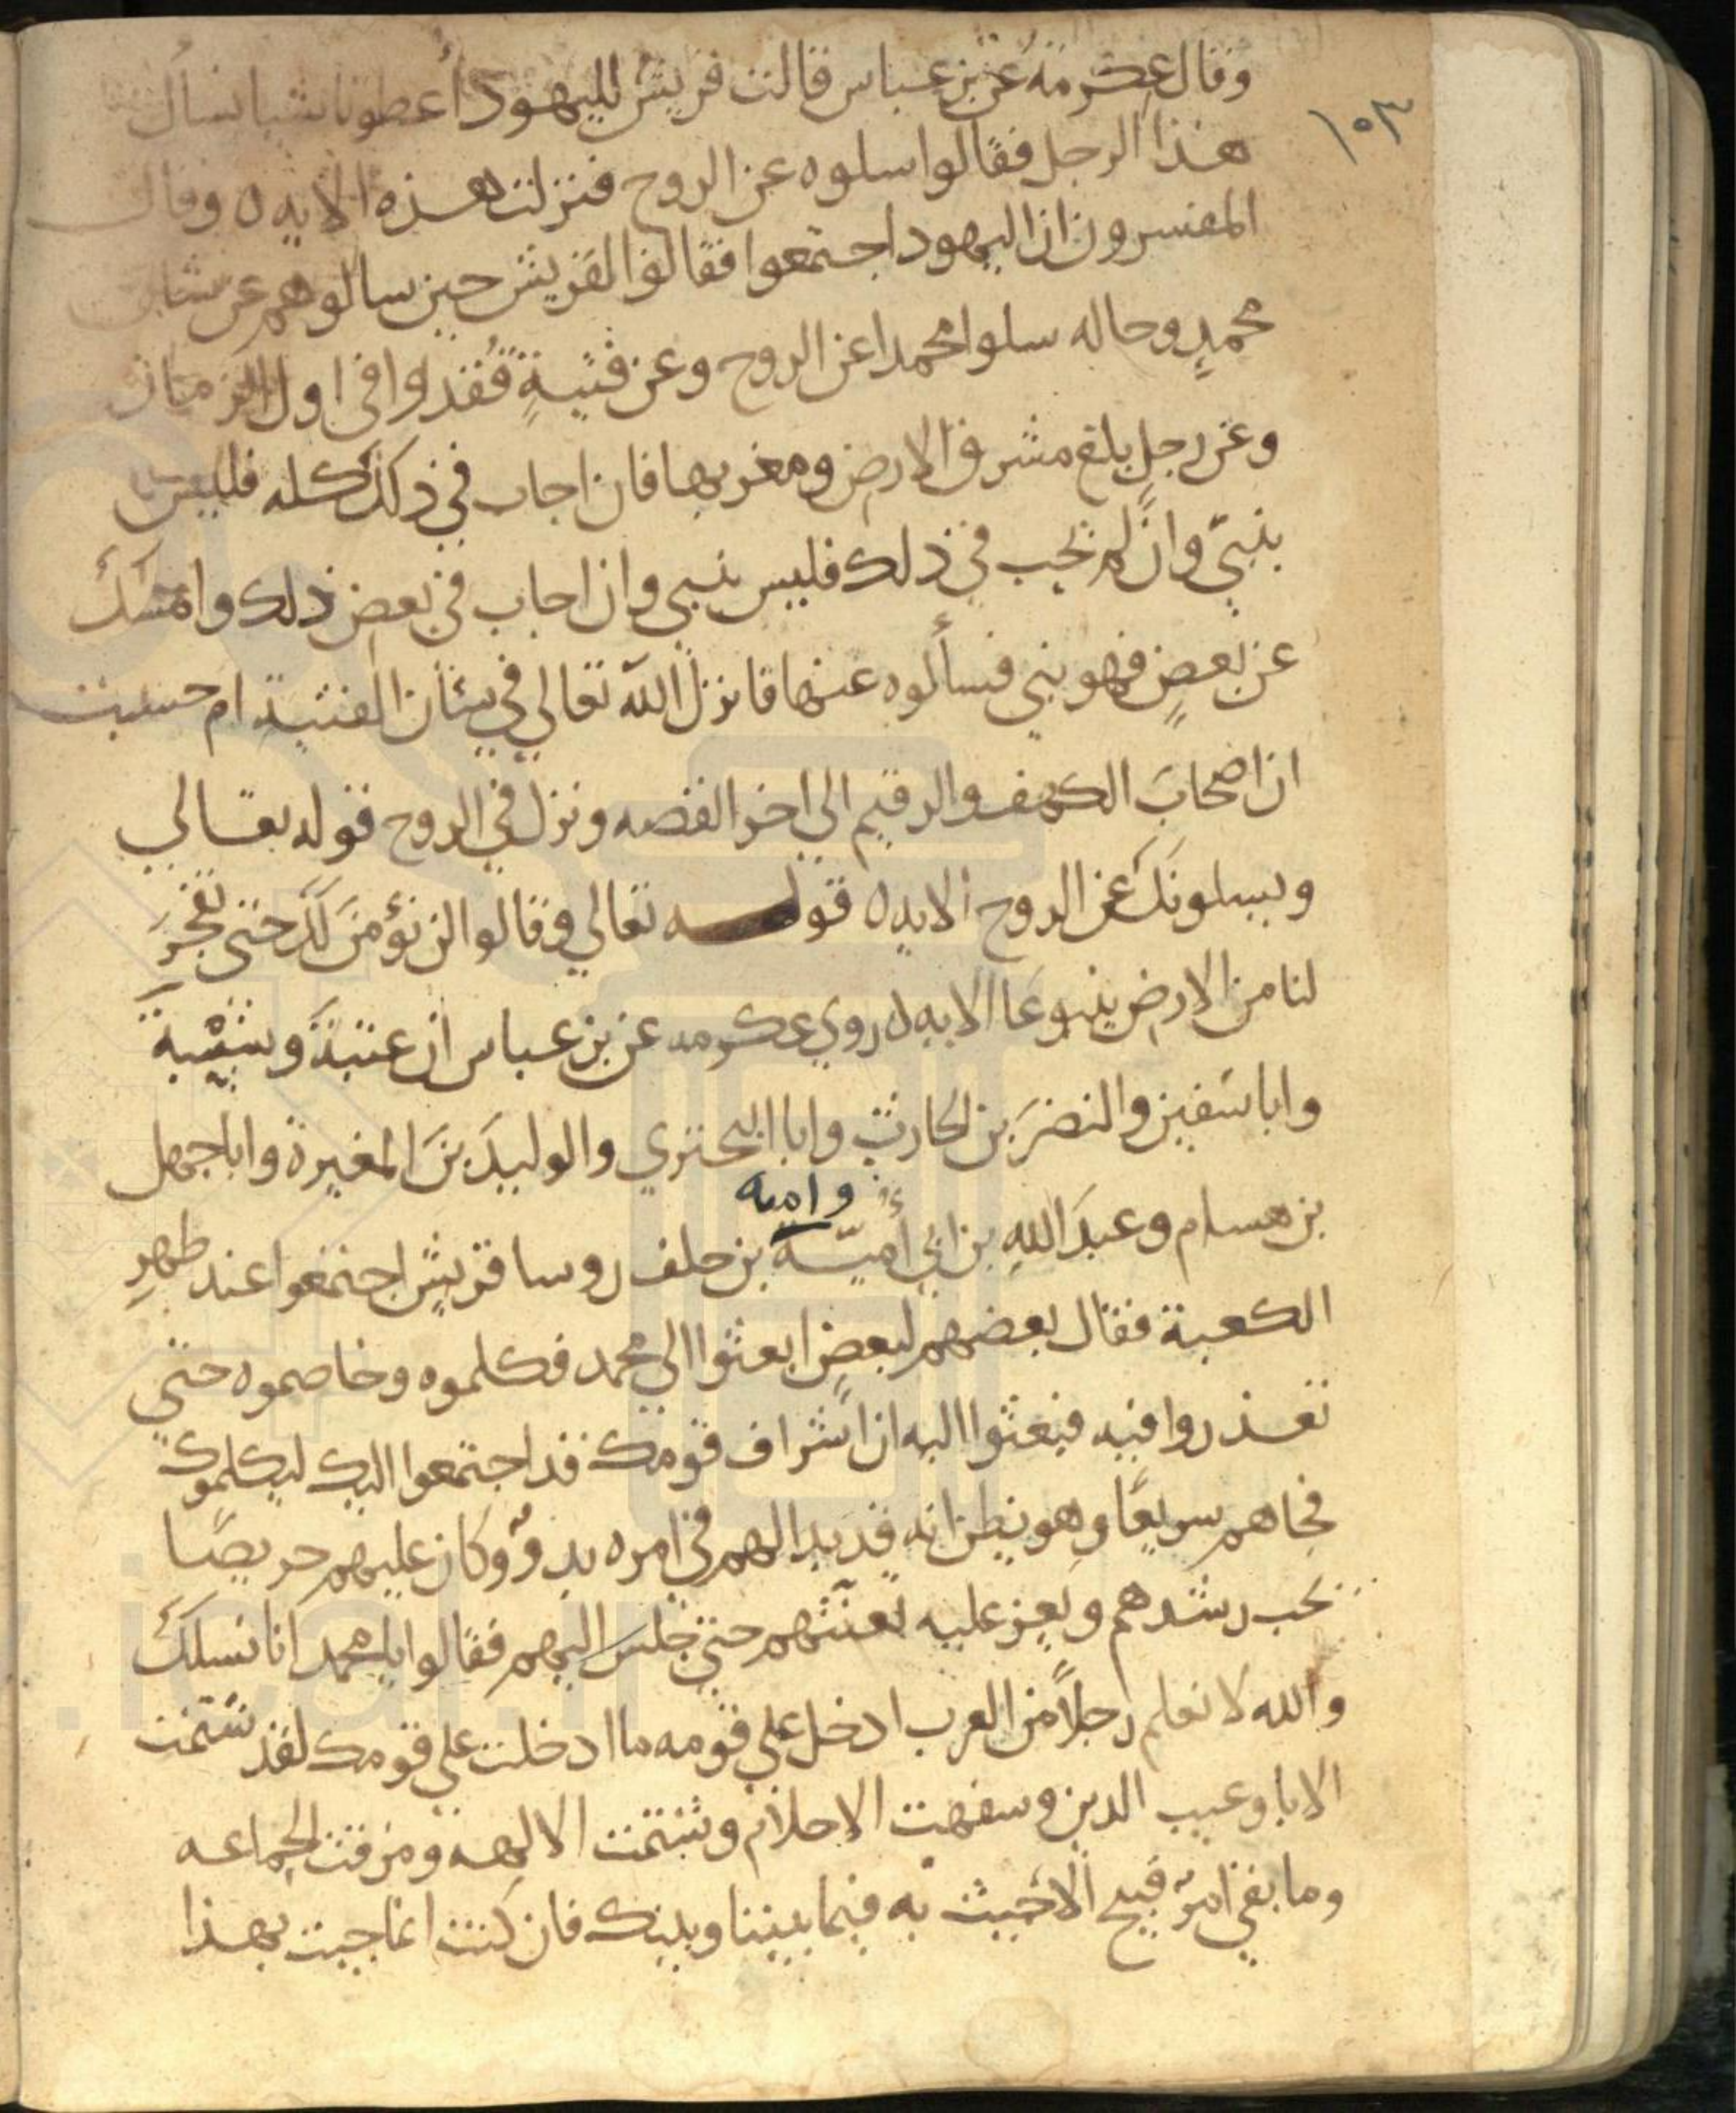 ١٥٣
وقال عكرمة عن بن عباس قالت قريش لليهود أعطونا شيا نسأل
هذا الرجل فقالوا سلوه عن الروح فنزلت هذه الايه ه وقال
المفسرون ان اليهود اجتمعوا فقالوا لقريش حين سالوهم عن شان
محمدٍ وحاله سلوا محمدا عن الروح وعن فتيةٍ فُقدوا في اول الزمان
وعن رجلٍ بلغ مشرق الارض ومغربها فان اجاب في ذلك كله فليس
بنبيّ وان لم يجب في ذلك فليس بنبي وان اجاب في بعض ذلك وامسك
عن بعضٍ فهو نبي فسألوه عنها فانزل الله تعالي في شأن الفتية ام حسبت
ان اصحابَ الكهف والرقيم الي اخر القصه ونزل في الروح قوله تعالي
ويسلونك عن الروح الايه ه قوله تعالي وقالوا لن نؤمنَ لك حتى تفجرَ
لنا من الارض ينبوعا الايه ه روي عكرمه عن بن عباس ان عتبةَ وشَيْبةَ
وابا سفين والنضرَ بن الحارث وابا البحتري والوليدَ بنَ المغيرة وابا جهل
وامية
بن هسام وعبدَ اللهِ بن ابي أُميّة بن خلف روسا قريش اجتمعوا عند ظهرِ
الكعبة فقال بعضهم لبعضٍ ابعثوا الي محمد فكلموه وخاصموه حتي
تعذروا فيه فبعثوا اليه ان اشراف قومك قد اجتمعوا اليك ليكلموك
فجاهم سريعًا وهو يظن انه قد بدا لهم في امره بدوٌ وكان عليهم حريصًا
يحب رشدهم ويعز عليه تعنّتهم حتي جلس اليهم فقالوا يا محمد انا نسلك
والله لا نعلم رجلًا من العرب ادخل علي قومه ما ادخلت علي قومك لقد شتمت
الابا وعيب الدين وسفهت الاحلام وشتمت الالهه ومزقت الجماعه
وما بقي امرٌ قبيح الا جيت به فيما بيننا وبينك فان كنت انما جيت بهذا